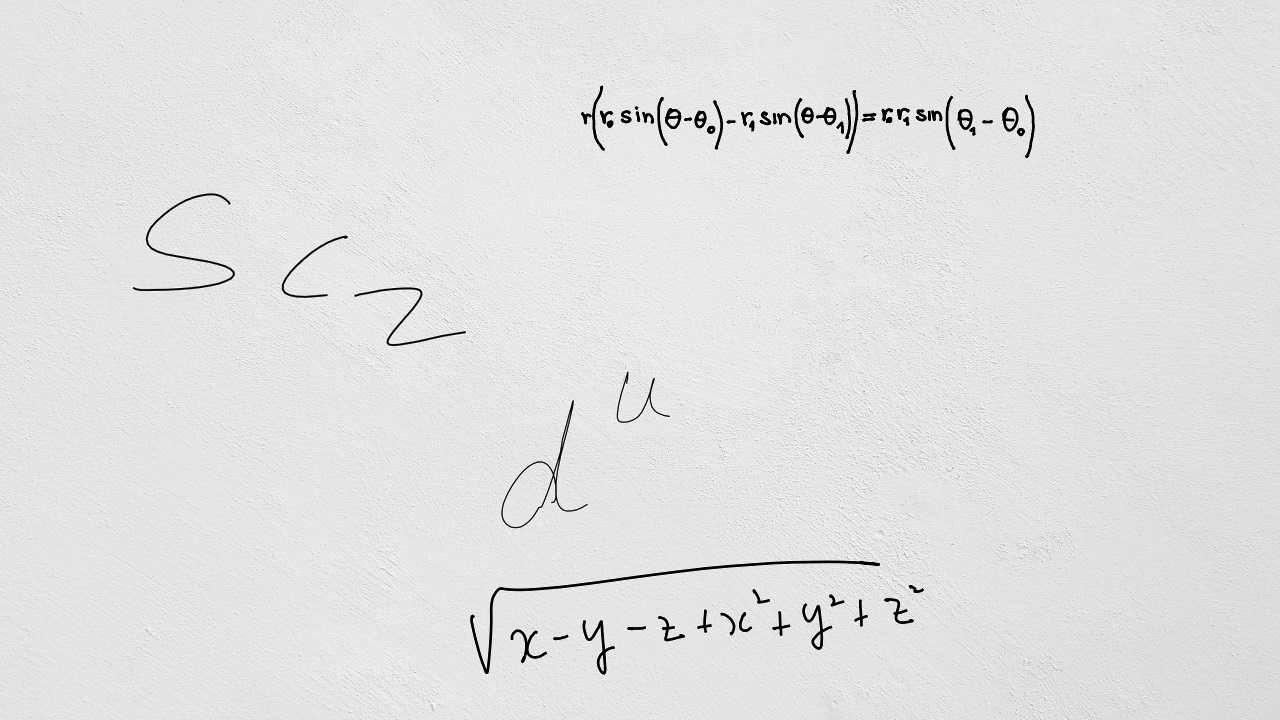 r(r₀ sin(θ-θ₀) - r₁ sin(θ-θ₁)) = r₀ r₁ sin(θ₁ - θ₀)
S c_z
d^u
√(x - y - z + x² + y² + z²)